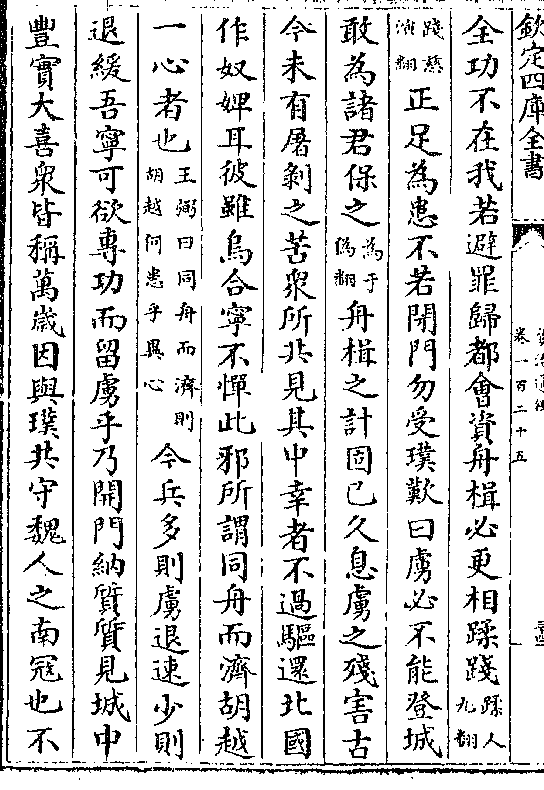 欽定四庫全書
資治通鑑
卷一百二十五
全功不在我若避罪歸都會資舟楫必更相蹂踐蹂人九翻
踐慈演翻正足為患不若閉門勿受璞歎曰虜必不能登城
敢為諸君保之為于偽翻舟楫之計固已久息虜之殘害古
今未有屠剝之苦衆所共見其中幸者不過驅還北國
作奴婢耳彼雖烏合寧不憚此邪所謂同舟而濟胡越
一心者也王弼曰同舟而濟則胡越何患乎異心今兵多則虜退速少則
退緩吾寧可欲專功而留虜乎乃開門納質質見城中
豐實大喜衆皆稱萬歲因與璞共守魏人之南寇也不